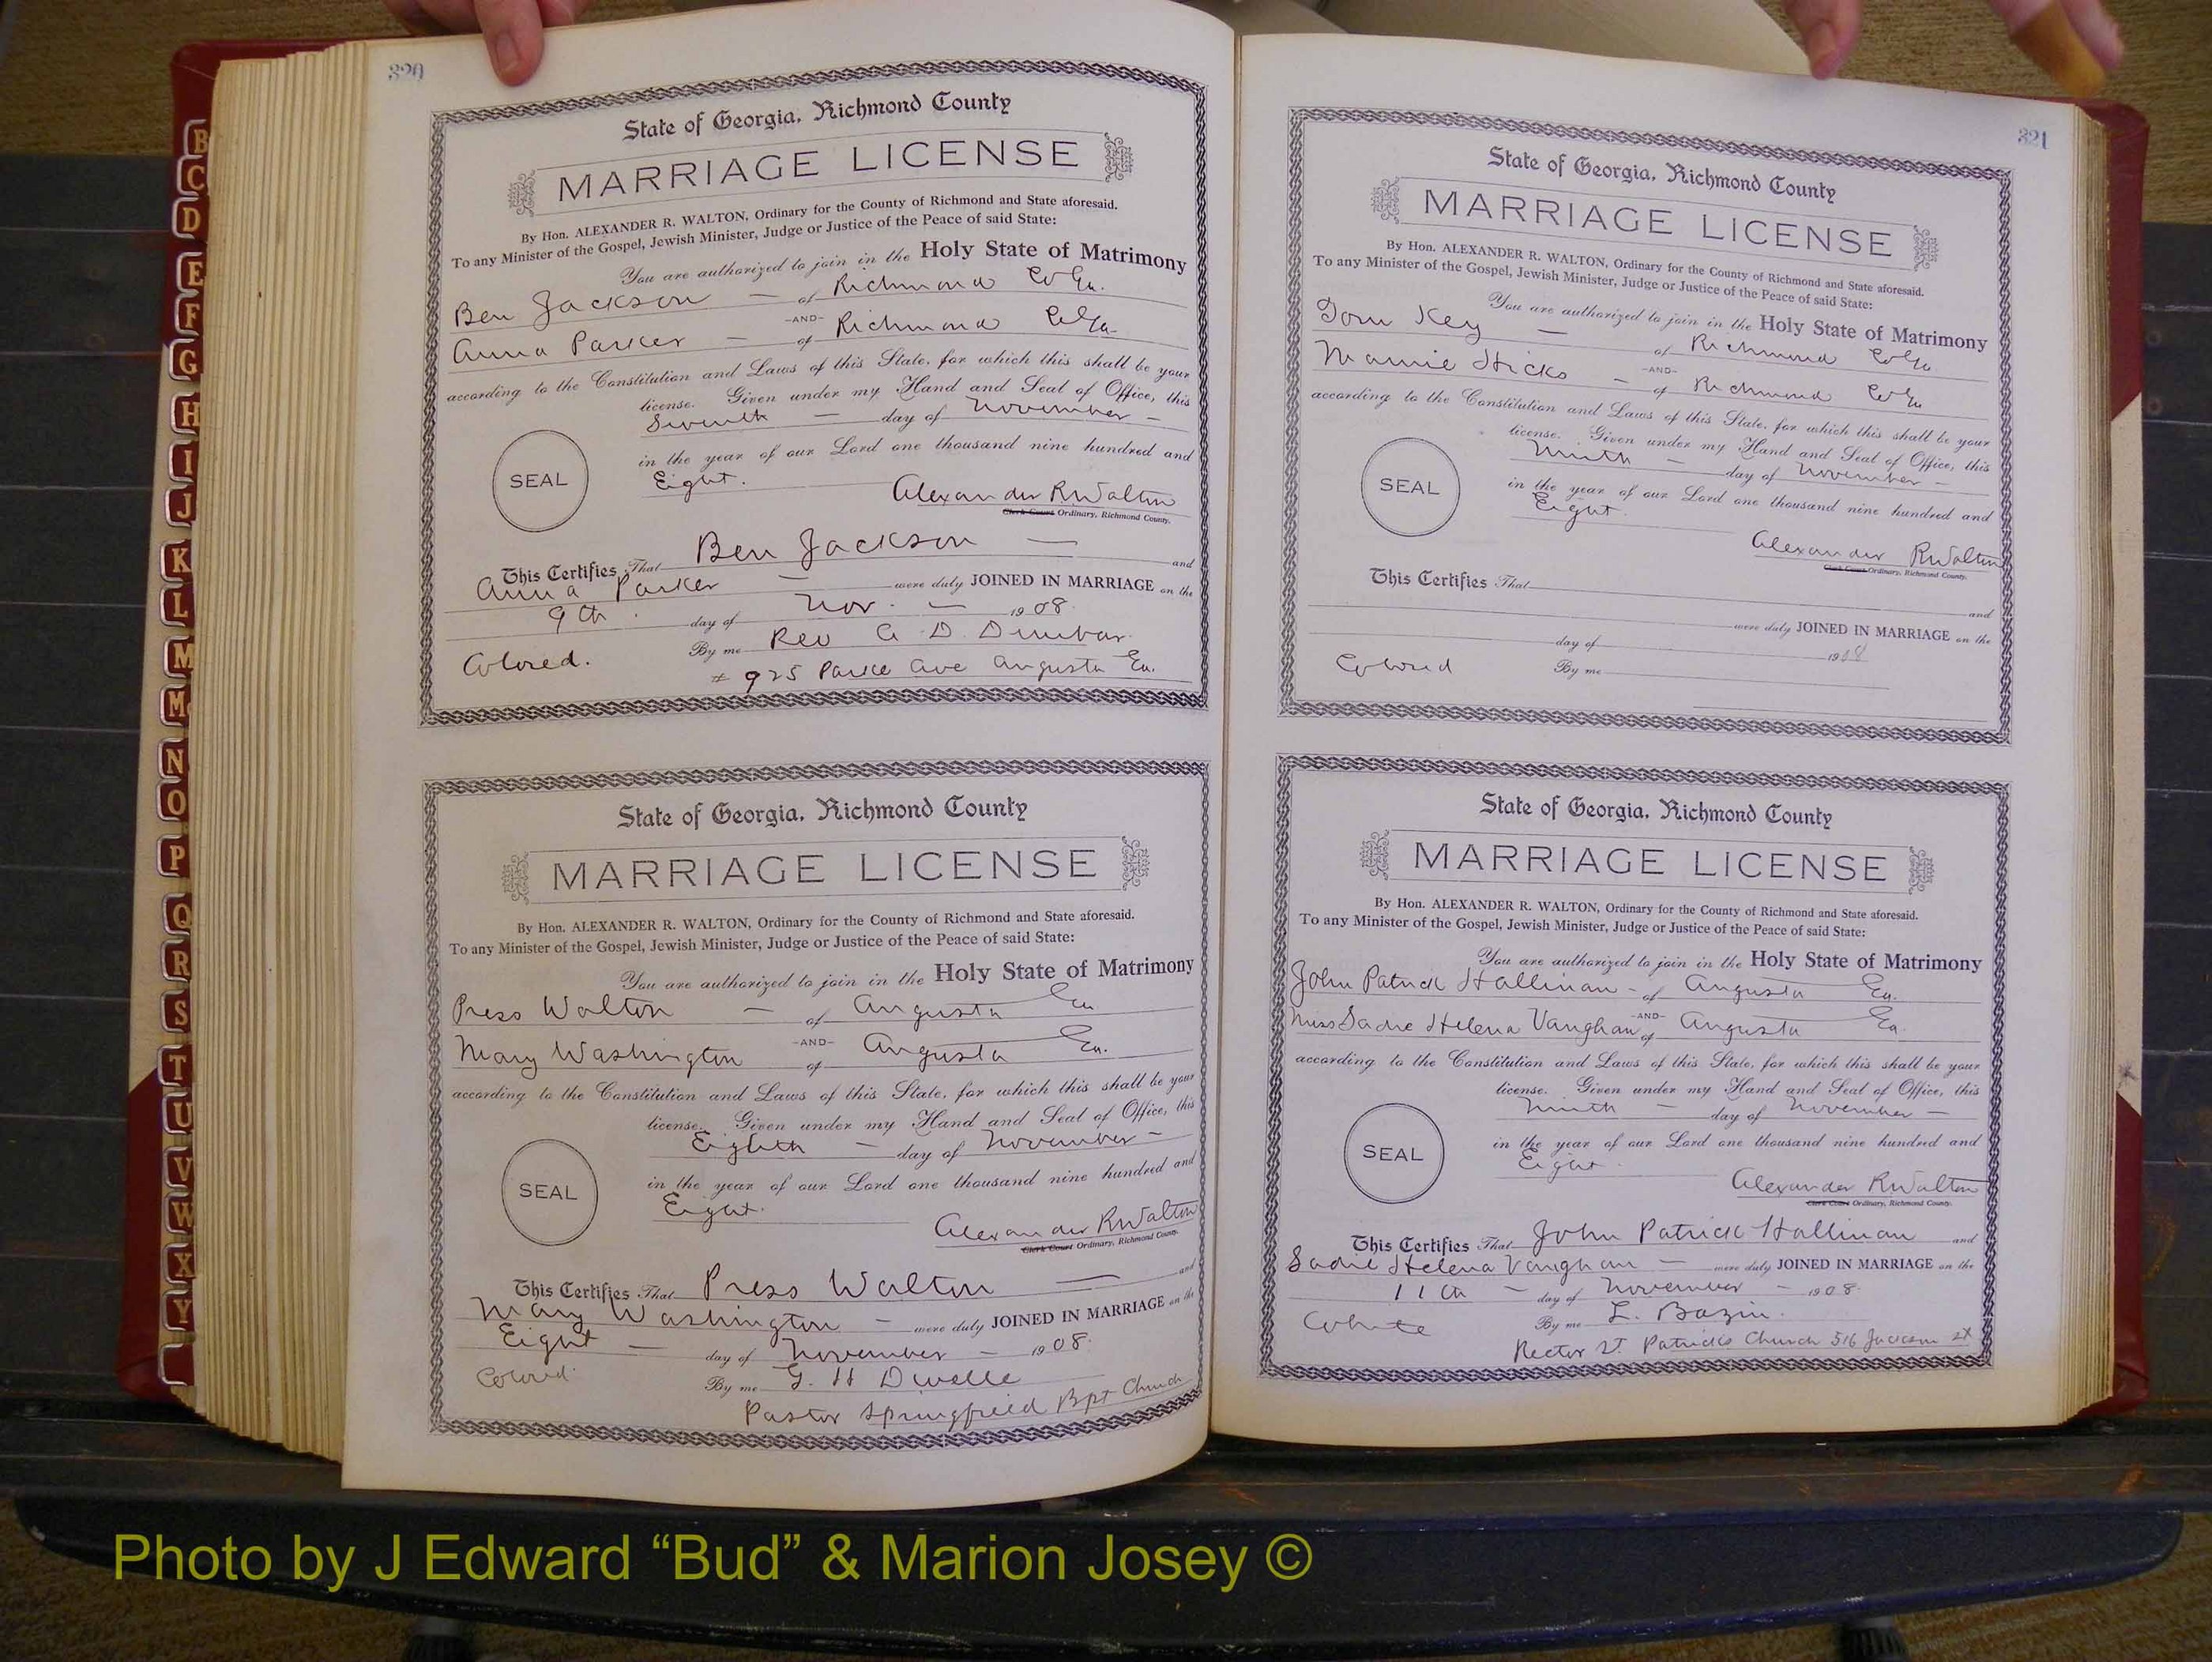 320
State of Georgia, Richmond County
MARRIAGE LICENSE
By Hon. ALEXANDER R. WALTON, Ordinary for the County of Richmond and State aforesaid.
To any Minister of the Gospel, Jewish Minister, Judge or Justice of the Peace of said State:
You are authorized to join in the Holy State of Matrimony
Ben Jackson — of Richmond Co Ga.
-AND-
Anna Parker — of Richmond Co Ga.
according to the Constitution and Laws of this State, for which this shall be your
license. Given under my Hand and Seal of Office, this
Seventh — day of November —
in the year of our Lord one thousand nine hundred and
SEAL
Eight. Alexander R Walton
Clerk Court Ordinary, Richmond County.
This Certifies That Ben Jackson — and
Anna Parker — were duly JOINED IN MARRIAGE on the
9th day of Nov. — 1908.
By me Rev G. D. Dunbar
Colored. # 925 Parke Ave Augusta Ga.
State of Georgia, Richmond County
MARRIAGE LICENSE
By Hon. ALEXANDER R. WALTON, Ordinary for the County of Richmond and State aforesaid.
To any Minister of the Gospel, Jewish Minister, Judge or Justice of the Peace of said State:
You are authorized to join in the Holy State of Matrimony
Press Walton — of Augusta Ga
-AND-
Mary Washington of Augusta Ga.
according to the Constitution and Laws of this State, for which this shall be your
license. Given under my Hand and Seal of Office, this
Eighth — day of November —
in the year of our Lord one thousand nine hundred and
SEAL
Eight. Alexander R Walton
Clerk Court Ordinary, Richmond County.
This Certifies That Press Walton — and
Mary Washington — were duly JOINED IN MARRIAGE on the
Eight — day of November — 1908.
Colored. By me G. H Dwelle
Pastor Springfield Bpt Church
321
State of Georgia, Richmond County
MARRIAGE LICENSE
By Hon. ALEXANDER R. WALTON, Ordinary for the County of Richmond and State aforesaid.
To any Minister of the Gospel, Jewish Minister, Judge or Justice of the Peace of said State:
You are authorized to join in the Holy State of Matrimony
Tom Key — of Richmond Co Ga
-AND-
Mamie Hicks — of Richmond Co Ga
according to the Constitution and Laws of this State, for which this shall be your
license. Given under my Hand and Seal of Office, this
Ninth — day of November —
in the year of our Lord one thousand nine hundred and
SEAL
Eight. Alexander R Walton
Clerk Court Ordinary, Richmond County.
This Certifies That and
were duly JOINED IN MARRIAGE on the
day of 1908
Colored By me
State of Georgia, Richmond County
MARRIAGE LICENSE
By Hon. ALEXANDER R. WALTON, Ordinary for the County of Richmond and State aforesaid.
To any Minister of the Gospel, Jewish Minister, Judge or Justice of the Peace of said State:
You are authorized to join in the Holy State of Matrimony
John Patrick Hallinan - of Augusta Ga.
-AND-
Miss Sadie Helena Vaughan of Augusta Ga.
according to the Constitution and Laws of this State, for which this shall be your
license. Given under my Hand and Seal of Office, this
Ninth — day of November —
in the year of our Lord one thousand nine hundred and
SEAL
Eight. Alexander R Walton
Clerk Court Ordinary, Richmond County.
This Certifies That John Patrick Hallinan and
Sadie Helena Vaughan — were duly JOINED IN MARRIAGE on the
11th — day of November — 1908.
White By me L. Bazin.
Rector St Patricks Church 516 Jackson st
B
C
D
E
F
G
H
I
J
K
L
M
Mc
N
O
P
Q
R
S
T
U
V
W
X
Y
Photo by J Edward “Bud” & Marion Josey ©